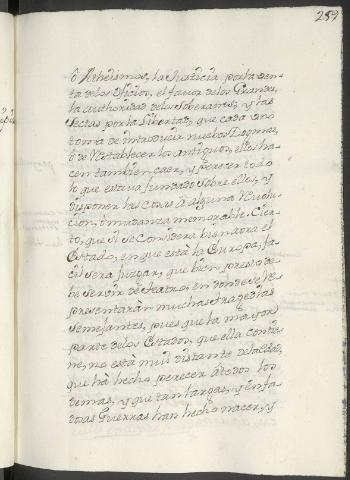 259
ô Atheismo, la Justicia, por la ven-
ta delos Oficios, el favor delos Grandes,
la authoridad delos Soberanos, y las
sectas por la libertad, que cada uno
toma de introducir nuebos Dogmas,
ô de restablecer los antiguos, ellas ha-
cen tambien caer, y perecer todo
lo que estava fundado sobre ellas, y
disponen las cosas â alguna revolu-
cion, ô mudanza memorable. Cier-
to, que si se considera bien aora el
Estado, en que està la Europa, fa-
cil sera juzgar, que bien presto de-
be servir de theatro, en donde se re-
presentaràn muchas tragedias
semejantes, pues que la mayor
parte delos Estados, que ella contie-
ne, no està mui distante dela edad,
que hà hecho perecer â todos los
demas, y que tan largas, y enfa-
dosas Guerras han hecho nacer, y